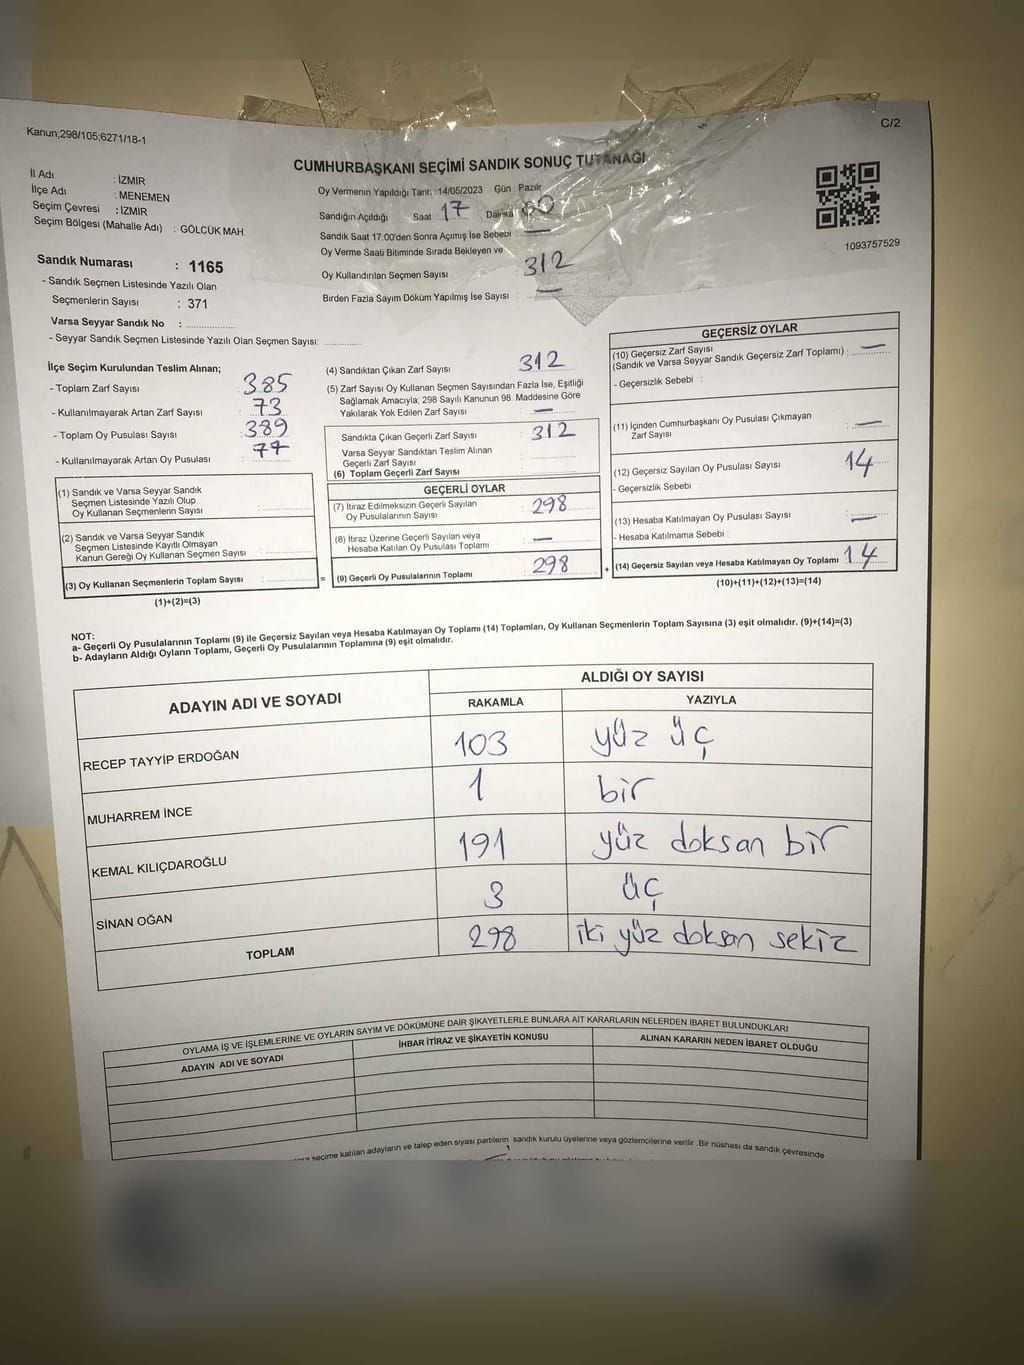 Kanun;298/105;6271/18-1
C/2
CUMHURBAŞKANI SEÇİMİ SANDIK SONUÇ TUTANAĞI
İl Adı : İZMİR
İlçe Adı : MENEMEN
Seçim Çevresi : İZMİR
Seçim Bölgesi (Mahalle Adı) : GÖLCÜK MAH.
Oy Vermenin Yapıldığı Tarih: 14/05/2023 Gün : Pazar
Sandığın Açıldığı Saat 17 Dakika 00
Sandık Saat 17:00'den Sonra Açımış İse Sebebi : —
Oy Verme Saati Bitiminde Sırada Bekleyen ve
Oy Kullandırılan Seçmen Sayısı : 312
Birden Fazla Sayım Döküm Yapılmış İse Sayısı : —
1093757529
Sandık Numarası : 1165
- Sandık Seçmen Listesinde Yazılı Olan
Seçmenlerin Sayısı : 371
Varsa Seyyar Sandık No :
- Seyyar Sandık Seçmen Listesinde Yazılı Olan Seçmen Sayısı:
İlçe Seçim Kurulundan Teslim Alınan;
- Toplam Zarf Sayısı : 385
- Kullanılmayarak Artan Zarf Sayısı : 73
- Toplam Oy Pusulası Sayısı : 389
- Kullanılmayarak Artan Oy Pusulası : 77
(1) Sandık ve Varsa Seyyar Sandık
Seçmen Listesinde Yazılı Olup
Oy Kullanan Seçmenlerin Sayısı :
(2) Sandık ve Varsa Seyyar Sandık
Seçmen Listesinde Kayıtlı Olmayan
Kanun Gereği Oy Kullanan Seçmen Sayısı :
(3) Oy Kullanan Seçmenlerin Toplam Sayısı :
(1)+(2)=(3)
(4) Sandıktan Çıkan Zarf Sayısı : 312
(5) Zarf Sayısı Oy Kullanan Seçmen Sayısından Fazla İse, Eşitliği
Sağlamak Amacıyla; 298 Sayılı Kanunun 98. Maddesine Göre
Yakılarak Yok Edilen Zarf Sayısı : —
Sandıkta Çıkan Geçerli Zarf Sayısı : 312
Varsa Seyyar Sandıktan Teslim Alınan
Geçerli Zarf Sayısı :
(6) Toplam Geçerli Zarf Sayısı :
GEÇERLİ OYLAR
(7) İtiraz Edilmeksizin Geçerli Sayılan
Oy Pusulalarının Sayısı : 298
(8) İtiraz Üzerine Geçerli Sayılan veya
Hesaba Katılan Oy Pusulası Toplamı : —
= (9) Geçerli Oy Pusulalarının Toplamı : 298
GEÇERSİZ OYLAR
(10) Geçersiz Zarf Sayısı
(Sandık ve Varsa Seyyar Sandık Geçersiz Zarf Toplamı) : —
- Geçersizlik Sebebi :
(11) İçinden Cumhurbaşkanı Oy Pusulası Çıkmayan
Zarf Sayısı : —
(12) Geçersiz Sayılan Oy Pusulası Sayısı : 14
- Geçersizlik Sebebi :
(13) Hesaba Katılmayan Oy Pusulası Sayısı : —
- Hesaba Katılmama Sebebi :
+ (14) Geçersiz Sayılan veya Hesaba Katılmayan Oy Toplamı : 14
(10)+(11)+(12)+(13)=(14)
NOT:
a- Geçerli Oy Pusulalarının Toplamı (9) ile Geçersiz Sayılan veya Hesaba Katılmayan Oy Toplamı (14) Toplamları, Oy Kullanan Seçmenlerin Toplam Sayısına (3) eşit olmalıdır. (9)+(14)=(3)
b- Adayların Aldığı Oyların Toplamı, Geçerli Oy Pusulalarının Toplamına (9) eşit olmalıdır.
ADAYIN ADI VE SOYADI
ALDIĞI OY SAYISI
RAKAMLA YAZIYLA
RECEP TAYYİP ERDOĞAN 103 yüz üç
MUHARREM İNCE 1 bir
KEMAL KILIÇDAROĞLU 191 yüz doksan bir
SİNAN OĞAN 3 üç
TOPLAM 298 iki yüz doksan sekiz
OYLAMA İŞ VE İŞLEMLERİNE VE OYLARIN SAYIM VE DÖKÜMÜNE DAİR ŞİKAYETLERLE BUNLARA AİT KARARLARIN NELERDEN İBARET BULUNDUKLARI
ADAYIN ADI VE SOYADI İHBAR İTİRAZ VE ŞİKAYETİN KONUSU ALINAN KARARIN NEDEN İBARET OLDUĞU
seçime katılan adayların ve talep eden siyasi partilerin sandık kurulu üyelerine veya gözlemcilerine verilir. Bir nüshası da sandık çevresinde